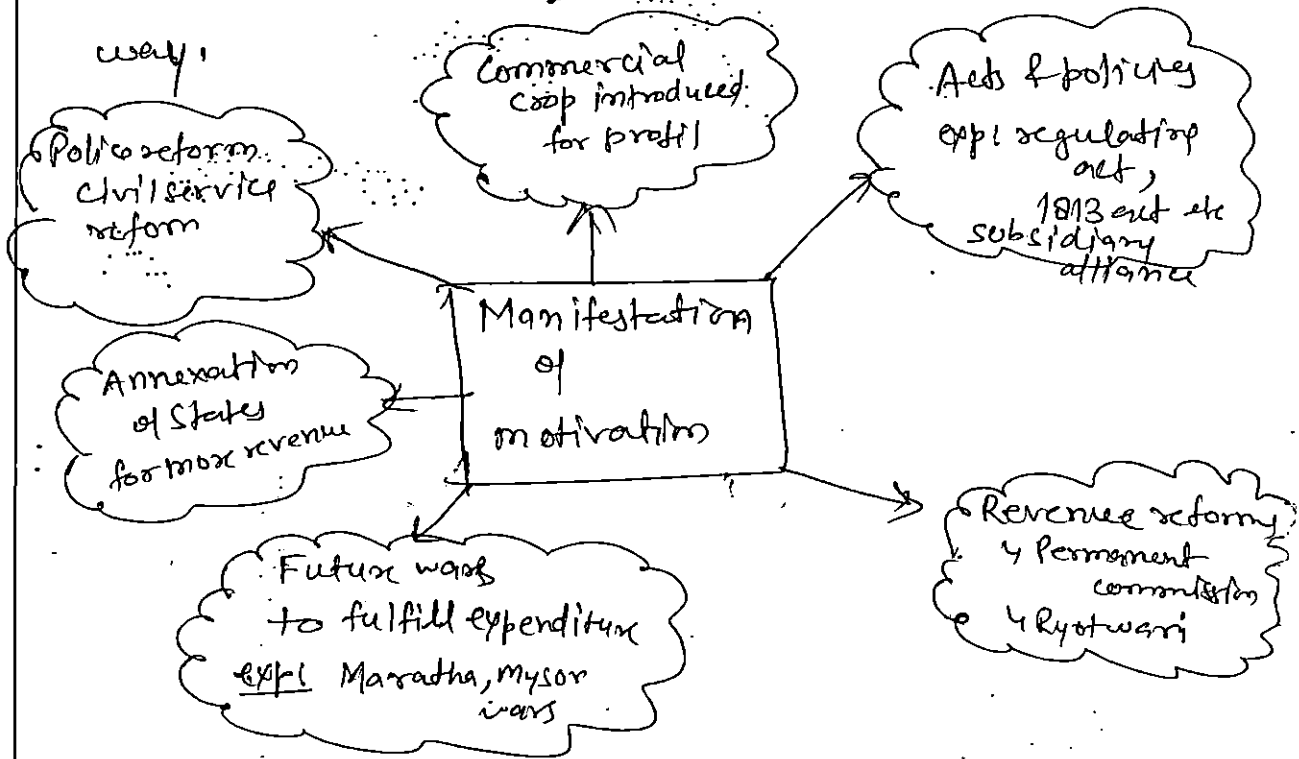 way.
Police reform
civil service
reform
Commercial
crop introduced
for profit
Acts & policies
exp: regulating
act,
1813 act etc
subsidiary
alliance
Manifestation
of
motivation
Annexation
of States
for more revenue
Future wars
to fulfill expenditure
exp: Maratha, Mysor
wars
Revenue reforms
↳ Permanent
commission
↳ Ryotwari